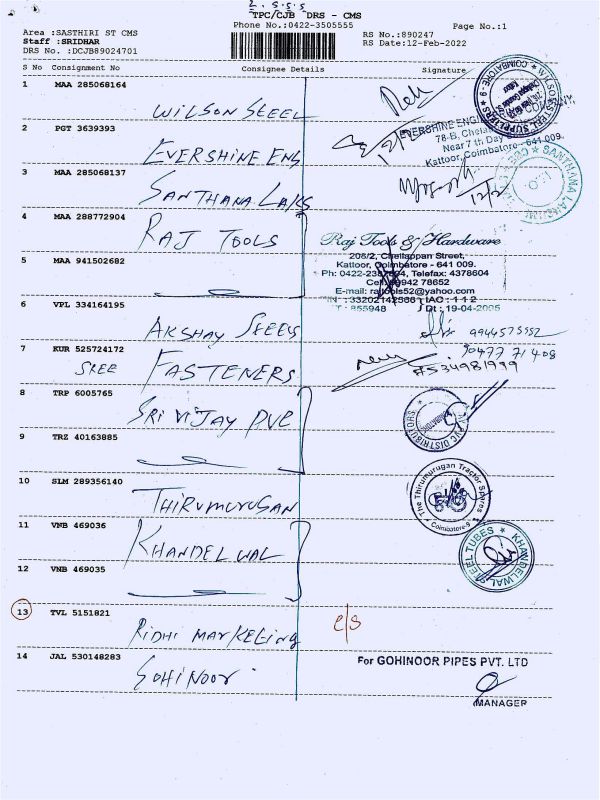 2.5.5.5
TPC/CJB DRS - CMS
Phone No.:0422-3505555
Page No.:1
Area :SASTHIRI ST CMS
Staff :SRIDHAR
DRS No. :DCJB89024701
RS No.:890247
RS Date:12-Feb-2022
S No Consignment No Consignee Details Signature
1 MAA 285068164
WILSON STEEL
2 PGT 3639393
EVERSHINE ENG
EVERSHINE
78-B,
Near 7th Day
Kattoor, Coimbatore - 641 009.
3 MAA 285068137
SANTHANA LAKS
4 MAA 288772904
RAJ TOOLS
Raj Tools & Hardware
206/2, Chellappan Street,
Kattoor, Coimbatore - 641 009.
Telefax: 4378604
78652
E-mail: rajtools52@yahoo.com
5 MAA 941502682
Dt : 19-04-2005
6 VPL 334164195
AKSHAY STEELS
9944575552
7 KUR 525724172
SREE FASTENERS
90477 71408
7534981999
8 TRP 6005765
SRI VIJAY PVC
PVC DISTRIBUTORS
9 TRZ 40163885
10 SLM 289356140
THIRUMURUGAN
The Thirumurugan Tractor Spares
Coimbatore-9
11 VNB 469036
KHANDELWAL
KHANDELWAL STEEL TUBES
12 VNB 469035
13 TVL 5151821
RIDHI MARKETING
c/s
14 JAL 530148283
GOHINOOR
For GOHINOOR PIPES PVT. LTD
MANAGER